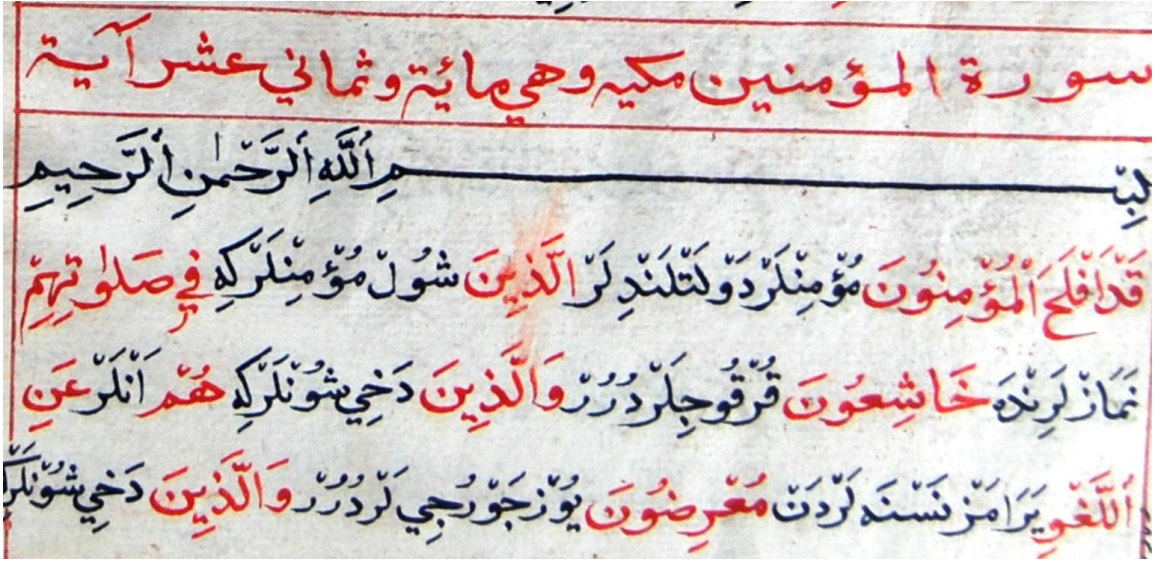 سورة المؤمنين مكيه وهي مائة وثماني عشر آية
بِسْمِ ٱللَّهِ ٱلرَّحْمٰنِ ٱلرَّحِيمِ
قَدْ اَفْلَحَ اَلْمُؤْمِنُونَ مُؤْمِنْلَرْ دَوْلَتْلَنْدِلَرْ الَّذِينَ شُولْ مُؤْمِنْلَرْكِه فِي صَلٰوتِهِمْ
نَمَازْلَرِنْدَه خَاشِعُونَ قُرْقُوجِلَرْدُرُرْ وَالَّذِينَ دَخِي شُونْلَرْكِه هُمْ اَنْلَرْ عَنِ
اَللَّغْوِ يَرَامَزْ نَسْنَه لَرْدَنْ مُعْرِضُونَ يُوزْ جَوْرُجِي لَرْدُرُرْ وَالَّذِينَ دَخِي شُونْلَرْكِ